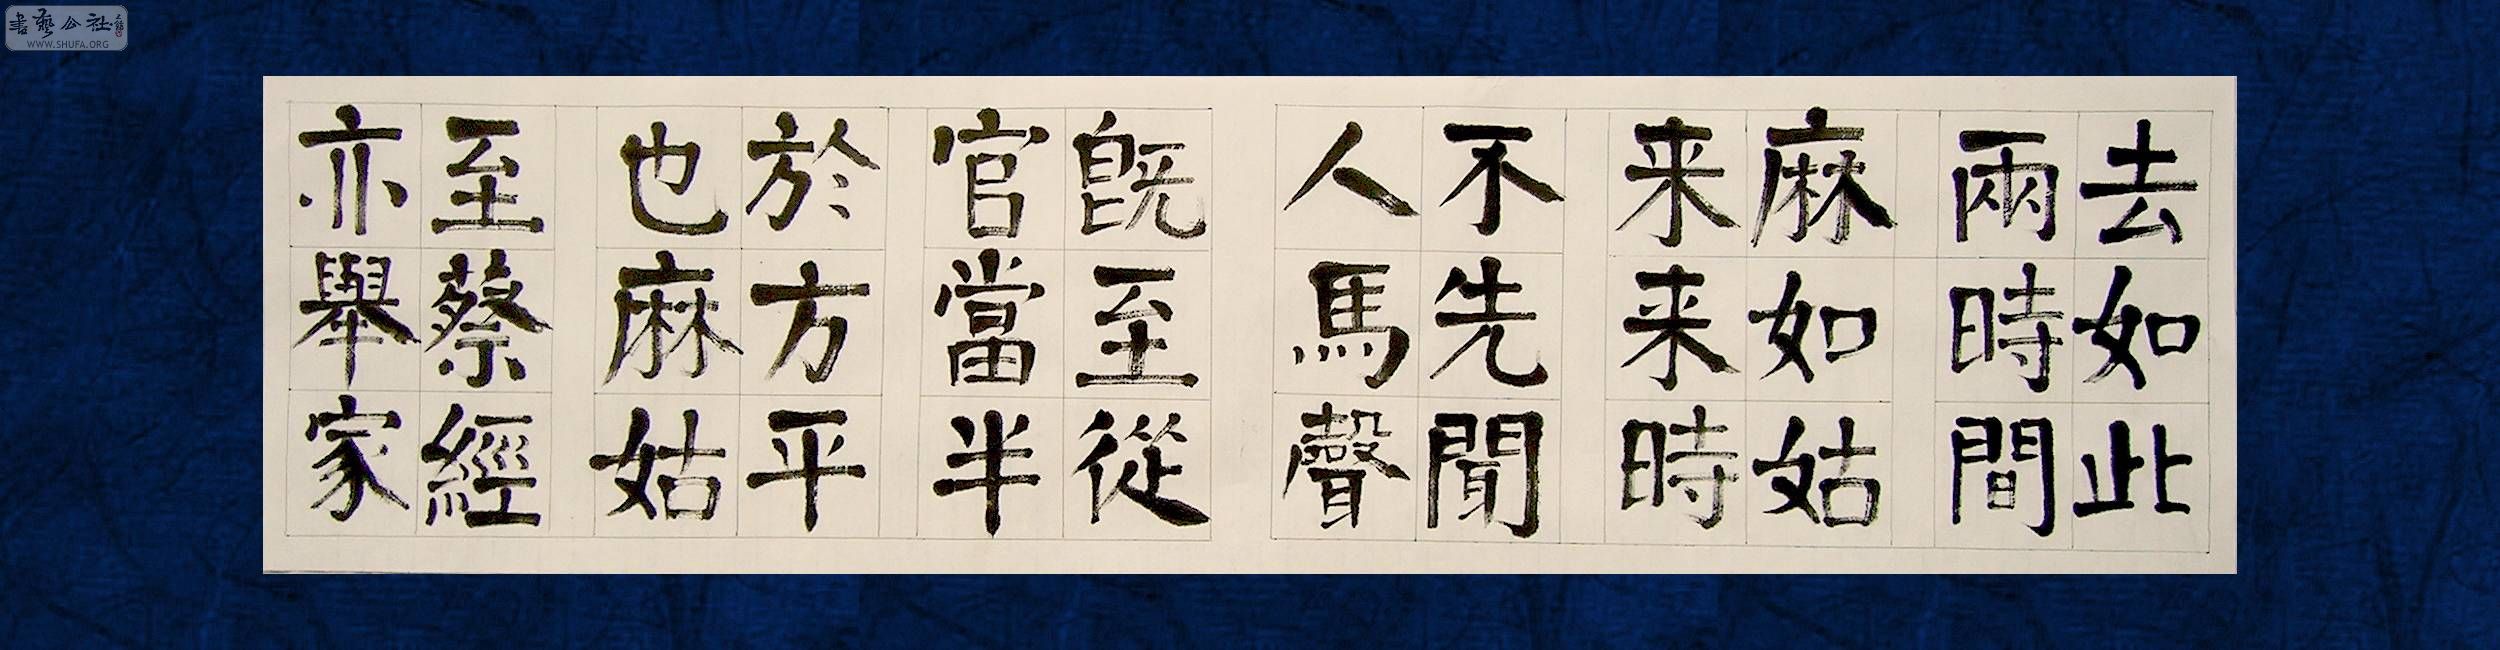 去如此
兩時間
麻如姑
来来時
不先聞
人馬聲
既至從
官當半
於方平
也麻姑
至蔡經
亦舉家
書藝公社
WWW.SHUFA.ORG